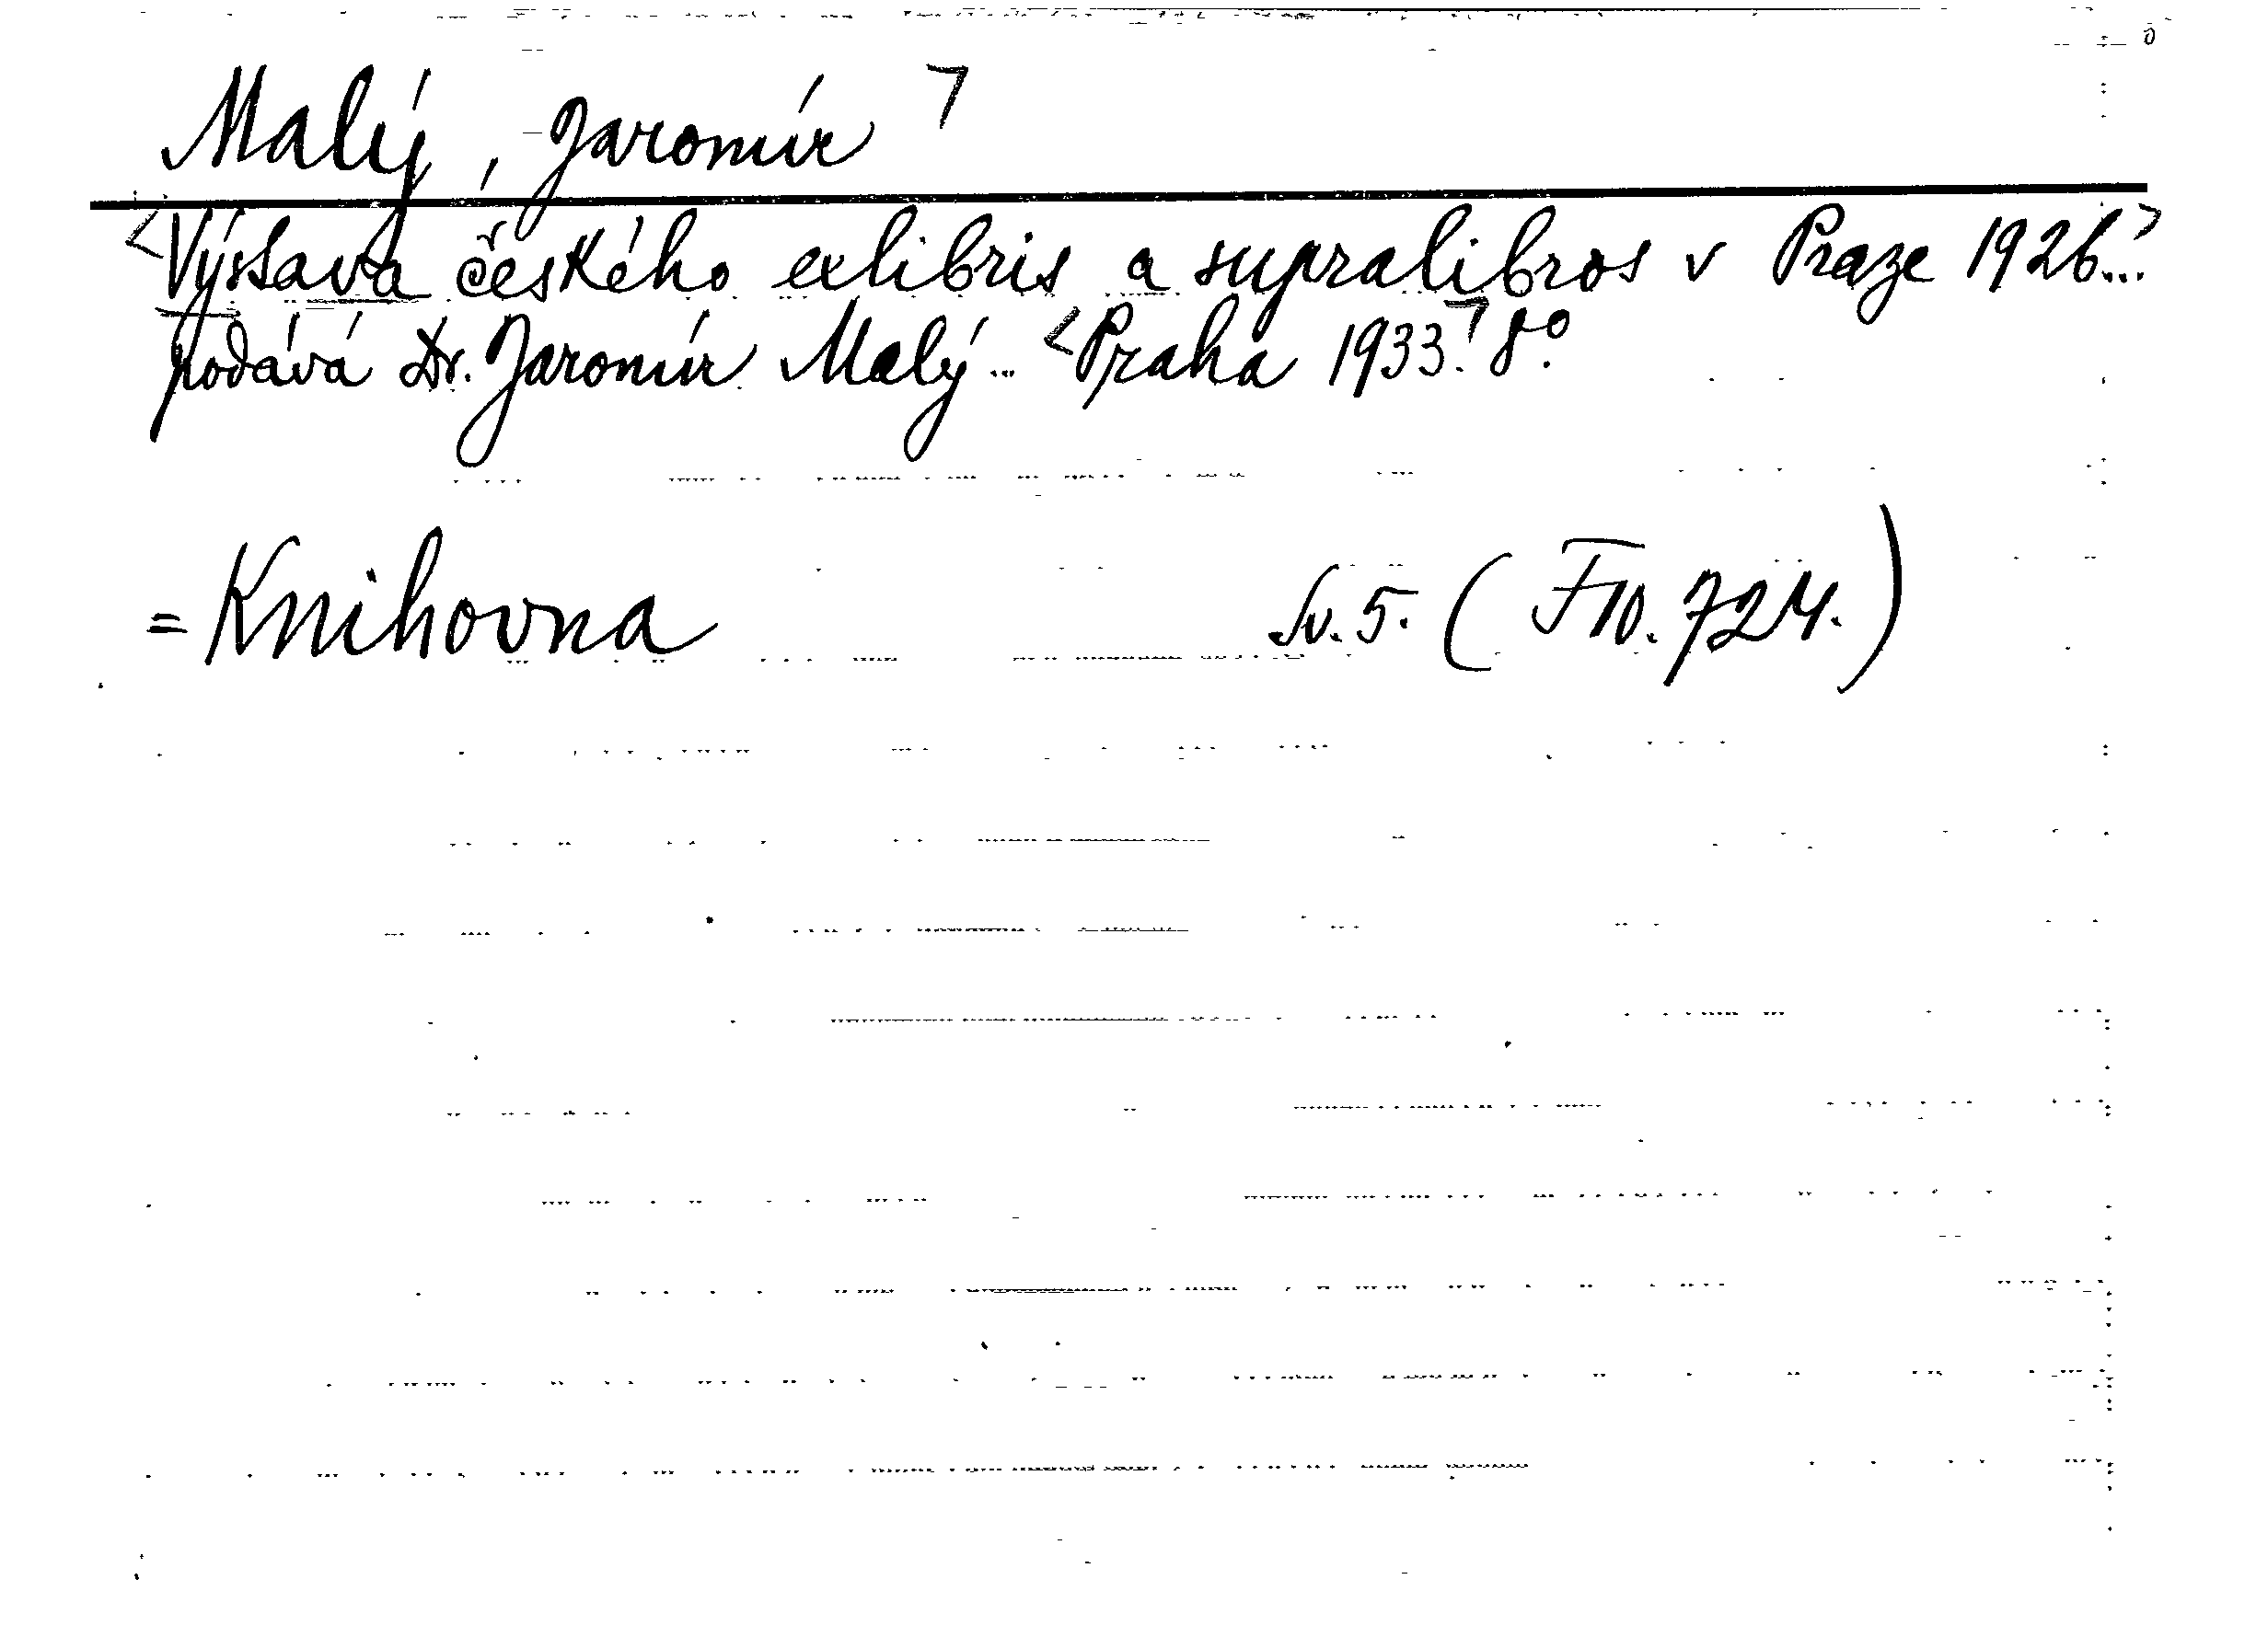 Malý, Jaromír ┐
<Výstava českého exlibris a supralibros v Praze 1926...>
podává Dr. Jaromír Malý... <Praha 1933.┐ 8°.
= Knihovna Sv. 5. (F 10. 724.)